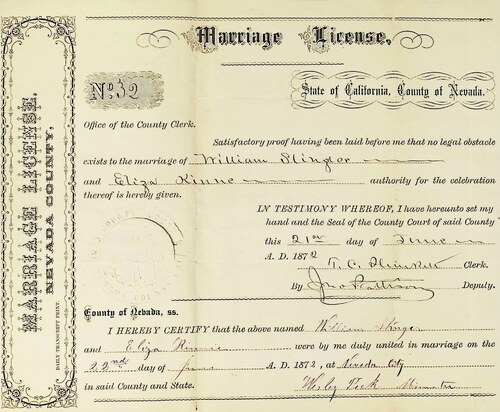 Marriage License,
No. 32
State of California, County of Nevada.
Office of the County Clerk.
Satisfactory proof having been laid before me that no legal obstacle
exists to the marriage of William
and Eliza Kinne authority for the celebration
thereof is hereby given.
IN TESTIMONY WHEREOF, I have hereunto set my
hand and the Seal of the County Court of said County
this 21st day of June
A. D. 1872
T. C. Clerk.
By Jno Deputy.
County of Nevada, ss.
I HEREBY CERTIFY that the above named William
and Eliza were by me duly united in marriage on the
22nd day of June A. D. 1872, at Nevada City
in said County and State. Wesley Minister
MARRIAGE LICENSE.
NEVADA COUNTY.
DAILY TRANSCRIPT PRINT.